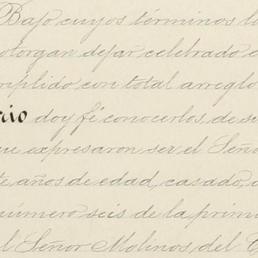 Bajo cuyos términos l
otorgan dejar celebrado
mplido con total arreglo
rio doy fé conocerlos de
ue expresaron ser el Seño
te años de edad, casado,
número seis de la primi
l Señor Molinos del